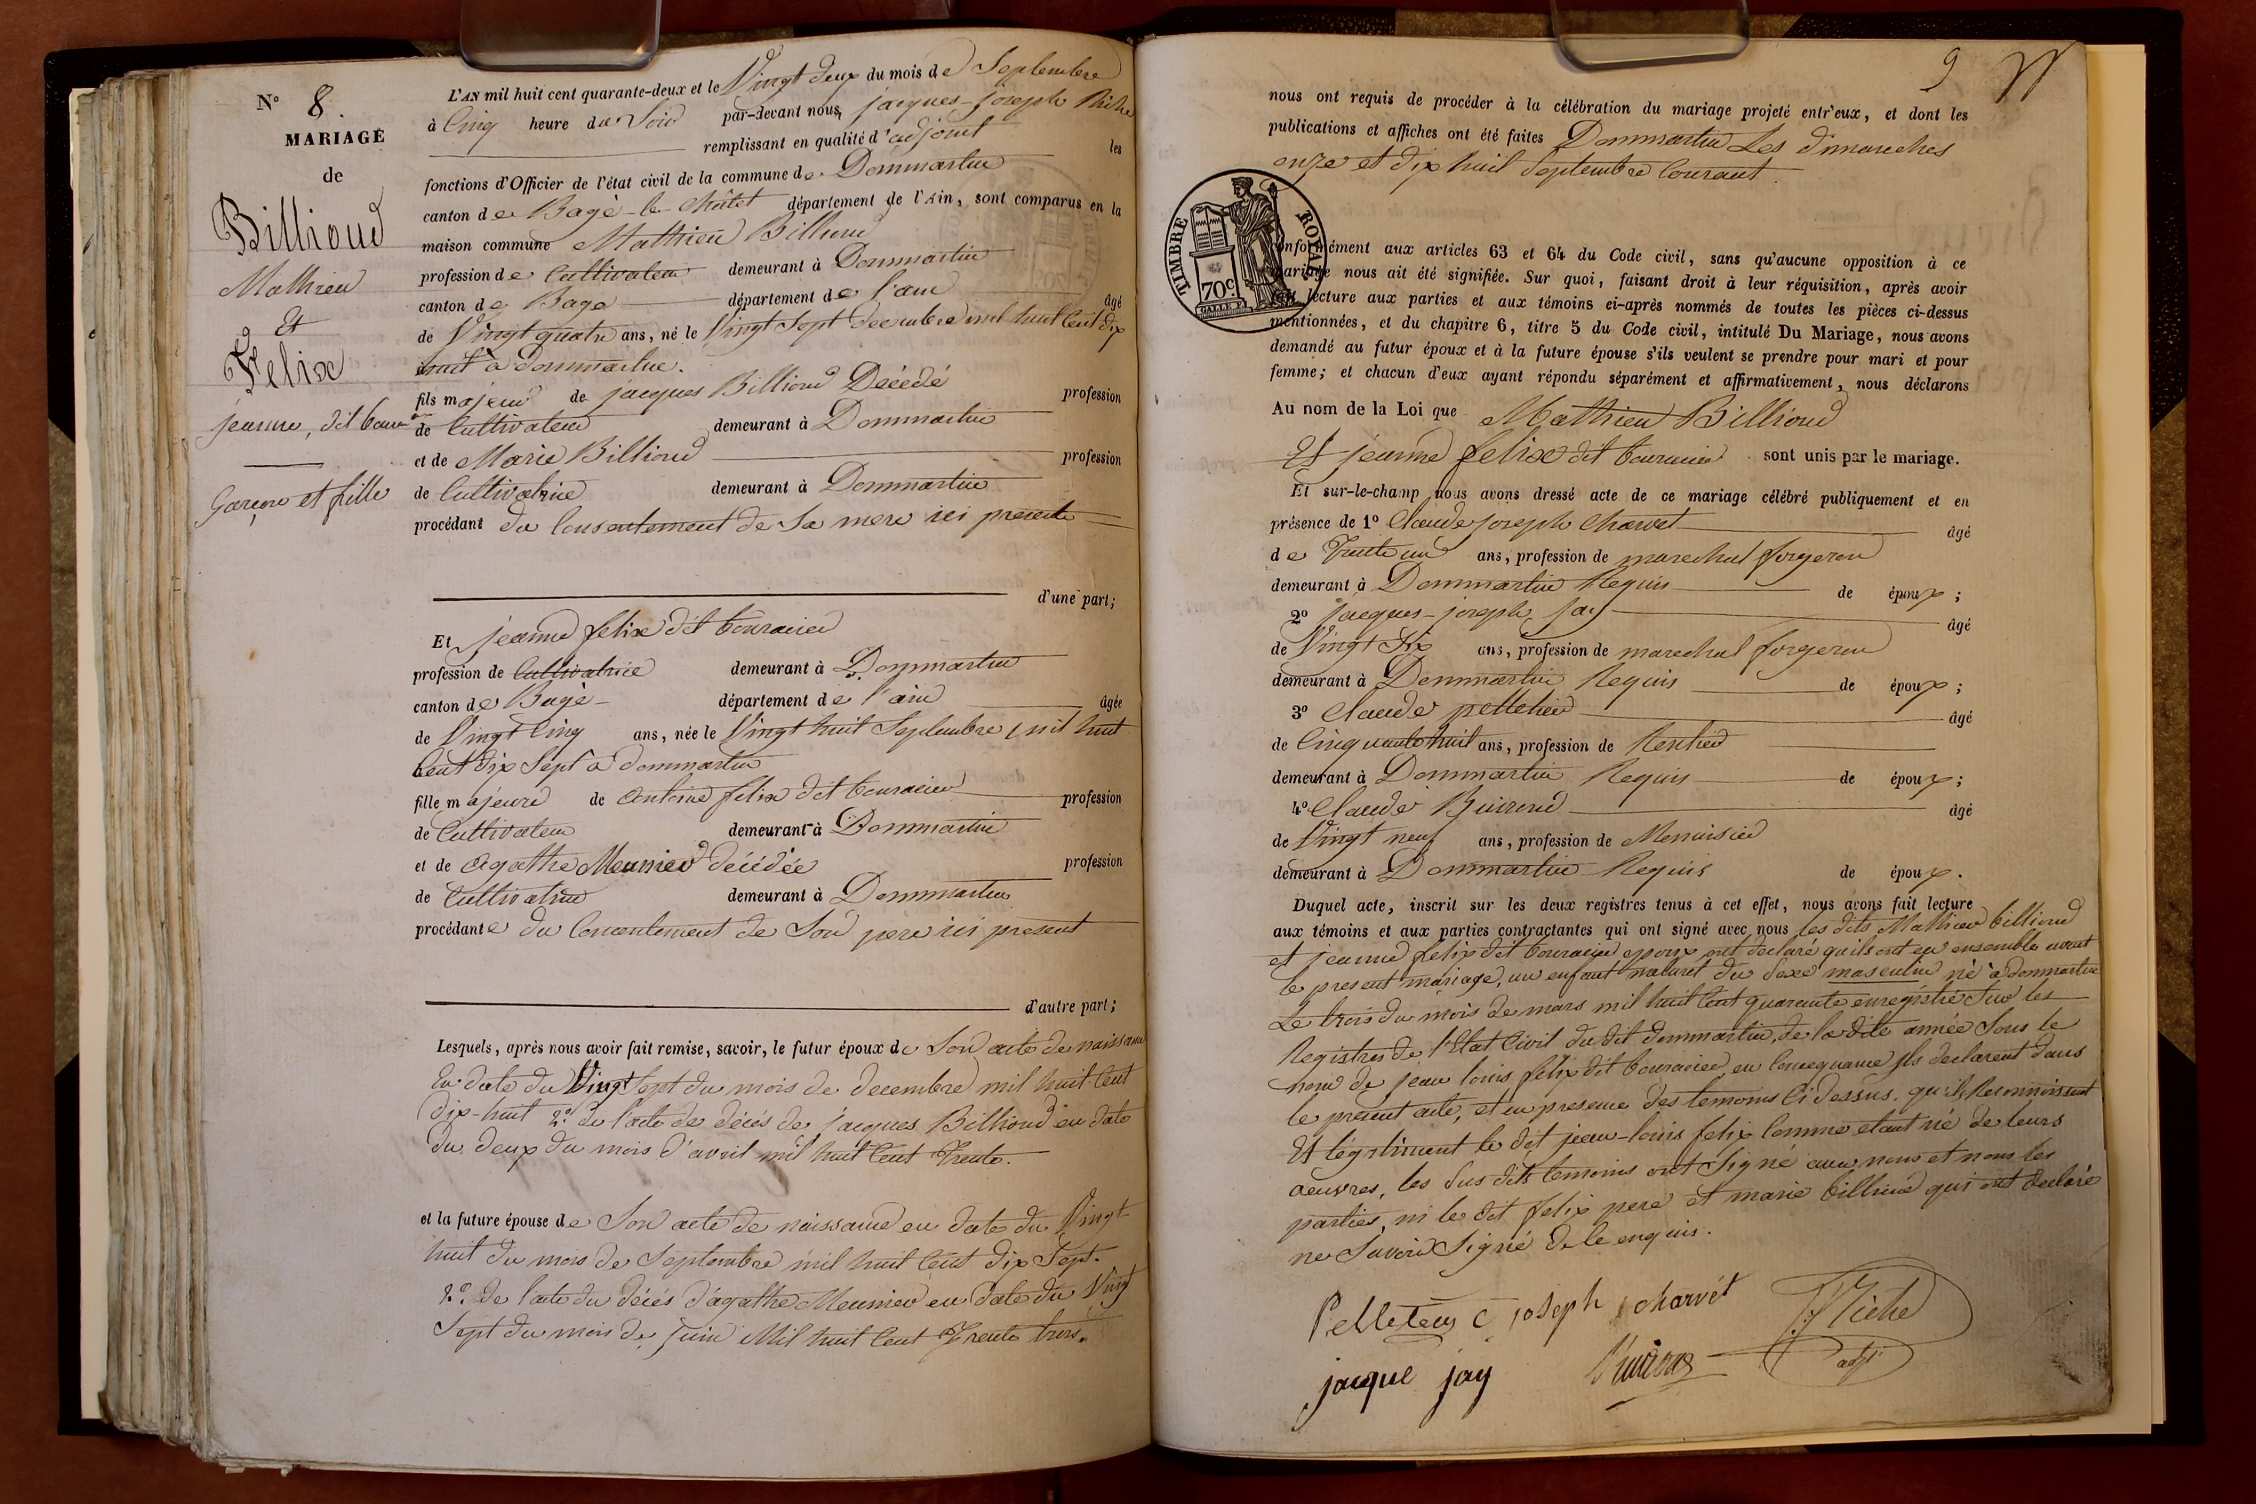 N° 8.
MARIAGE
de
Billioud
Mathieu
Et
Felix
jeanne, dit
Garçon et fille
L'AN mil huit cent quarante-deux et le Vingt deux du mois de Septembre
à Cinq heure du Soir par-devant nous, jacques-joseph Riche
remplissant en qualité d'adjoint les
fonctions d'Officier de l'état civil de la commune de Dommartin
canton de Bagé-le-Châtel département de l'Ain, sont comparus en la
maison commune Mathieu Billioud
profession de Cultivateur demeurant à Dommartin
canton de Bagé département de l'ain âgé
de Vingt quatre ans, né le Vingt Sept decembre mil huit Cent dix
huit à dommartin.
fils majeur de jacques Billioud Décédé profession
de Cultivateur demeurant à Dommartin
et de Marie Billioud profession
de Cultivatrice demeurant à Dommartin
procédant du Consentement de Sa mere ici presente
d'une part;
Et jeanne felix dit bouracier
profession de Cultivatrice demeurant à Dommartin
canton de Bagé département de l'ain âgée
de Vingt Cinq ans, née le Vingt huit Septembre mil huit
Cent dix Sept à dommartin
fille majeure de antoine felix dit bouracier profession
de Cultivateur demeurant à Dommartin
et de agathe Meunier décédée profession
de Cultivatrice demeurant à Dommartin
procédante du Concentement de Son pere ici present
d'autre part;
Lesquels, après nous avoir fait remise, savoir, le futur époux de Son acte de naissance
En date du Vingt Sept du mois de decembre mil huit Cent
dix-huit 2° de l'acte de décés de jacques Billioud en date
du deux du mois d'avril mil huit Cent Trente.
et la future épouse de Son acte de naissance en date du Vingt
huit du mois de Septembre mil huit Cent dix Sept.
2° de l'acte du décés d'agathe Meunier en date du Vingt
Sept du mois de juin Mil huit Cent Trente trois.
9
nous ont requis de procéder à la célébration du mariage projeté entr'eux, et dont les
publications et affiches ont été faites Dommartin Les dimanches
onze et dix huit Septembre Courant.
TIMBRE ROYAL
70c
onformément aux articles 63 et 64 du Code civil, sans qu'aucune opposition à ce
mariage nous ait été signifiée. Sur quoi, faisant droit à leur réquisition, après avoir
fait lecture aux parties et aux témoins ci-après nommés de toutes les pièces ci-dessus
mentionnées, et du chapitre 6, titre 5 du Code civil, intitulé Du Mariage, nous avons
demandé au futur époux et à la future épouse s'ils veulent se prendre pour mari et pour
femme; et chacun d'eux ayant répondu séparément et affirmativement, nous déclarons
Au nom de la Loi que Mathieu Billioud
Et jeanne felix dit bouracier sont unis par le mariage.
Et sur-le-champ nous avons dressé acte de ce mariage célébré publiquement et en
présence de 1° Claude joseph Charvet âgé
de Trente un ans, profession de marechal forgeron
demeurant à Dommartin Requis de époux;
2° jacques-joseph jay âgé
de Vingt Six ans, profession de marechal forgeron
demeurant à Dommartin Requis de époux;
3° Claude pelletier âgé
de Cinquante huit ans, profession de Rentier
demeurant à Dommartin Requis de époux;
4° Claude Buiron âgé
de Vingt neuf ans, profession de Menuisier
demeurant à Dommartin Requis de époux.
Duquel acte, inscrit sur les deux registres tenus à cet effet, nous avons fait lecture
aux témoins et aux parties contractantes qui ont signé avec nous les dits Mathieu billioud
et jeanne felix dit bouracier epoux ont declaré qu'ils ont eu ensemble avant
le present mariage, un enfant naturel du Sexe masculin né à dommartin
Le trois du mois de mars mil huit Cent quarante enregistré Sur les
Registres de l'Etat Civil du dit dommartin, de la dite année Sous le
nom de jean louis felix dit bouracier, en Concequance ils declarent dans
le present acte, et en presence des temoins Ci dessus. qu'ils Reconnoissent
Et légitiment le dit jean-louis felix Comme etant né de leurs
oeuvres, les Sus dits temoins ont Signé avec nous et non les
parties, ni le dit felix pere et marie billioud qui ont declaré
ne Savoir Signé de le enquis.
Pelletier C joseph charvét Riche
jacque jay Buiron adjt